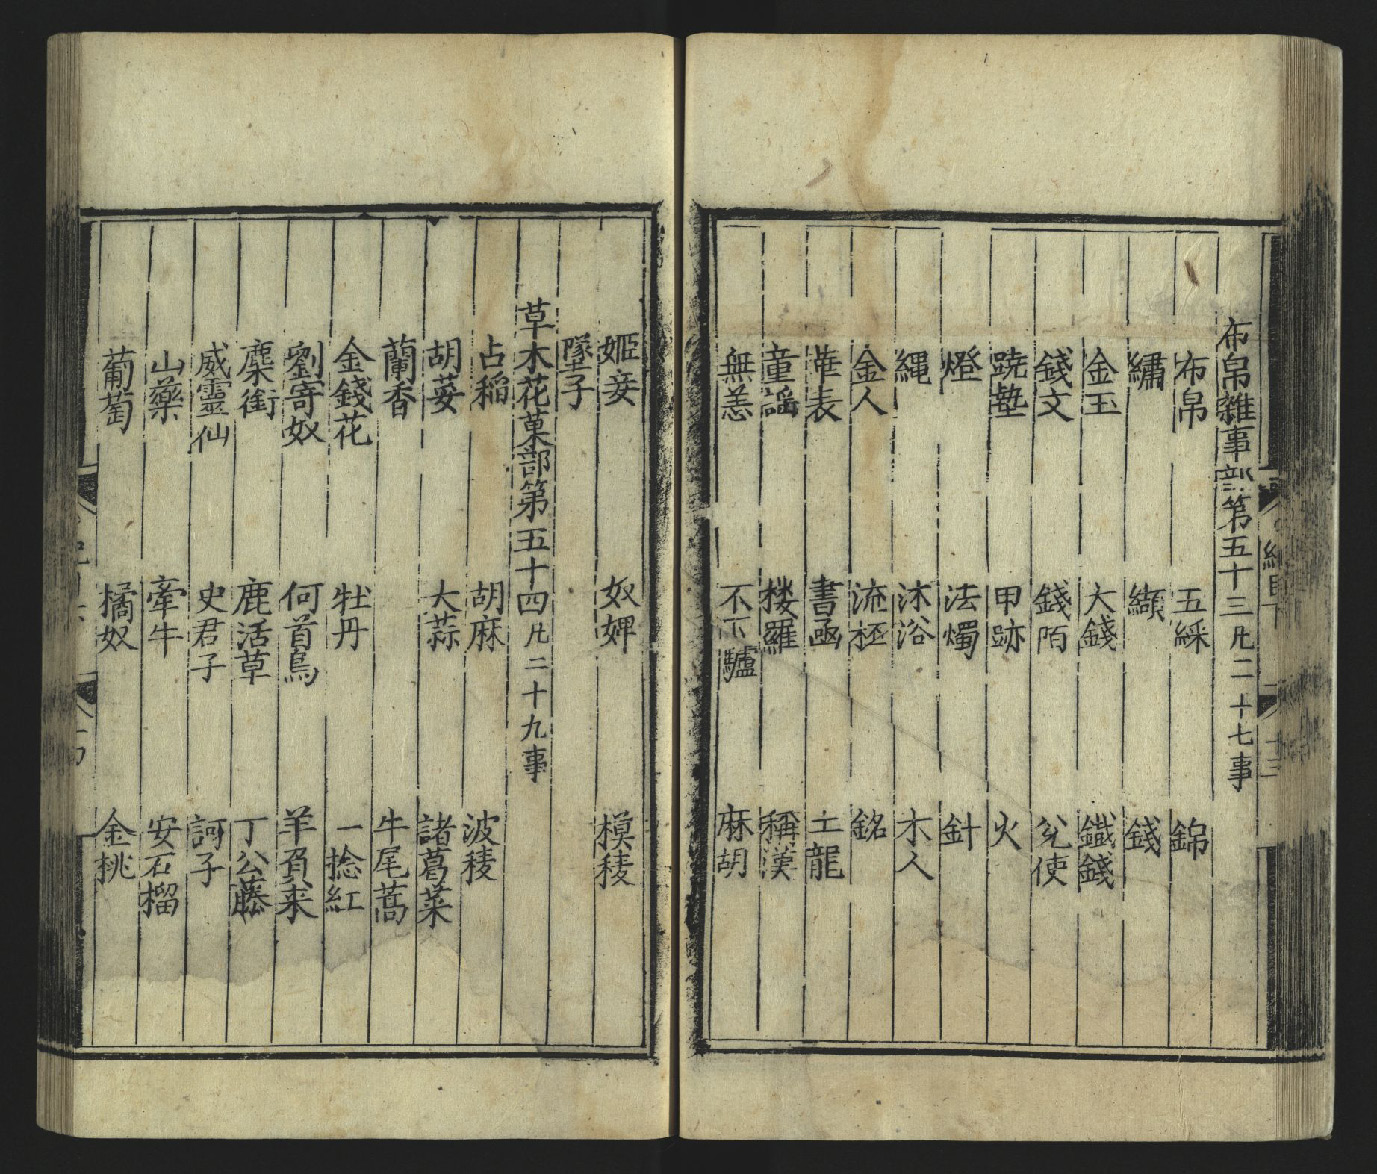 布帛雜事部第五十三凡二十七事
布帛 五綵 錦
繡 纈 錢
金玉 大錢 鐵錢
錢文 錢陌 兊使
蹺墊 甲跡 火
燈 法燭 針
繩 沐浴 木人
金人 流柸 銘
華表 書函 土龍
童謡 樓羅 稱漢
無恙 不下驢 麻胡
姬妾 奴婢 模稜
墜子
草木花菓部第五十四凡二十九事
占稲 胡麻 波稜
胡荽 大蒜 諸葛菜
蘭香 牛尾蒿
金錢花 牡丹 一捻紅
劉寄奴 何首烏 羊負来
麋銜 鹿活草 丁公藤
威靈仙 史君子 訶子
山藥 牽牛 安石榴
葡萄 橘奴 金桃